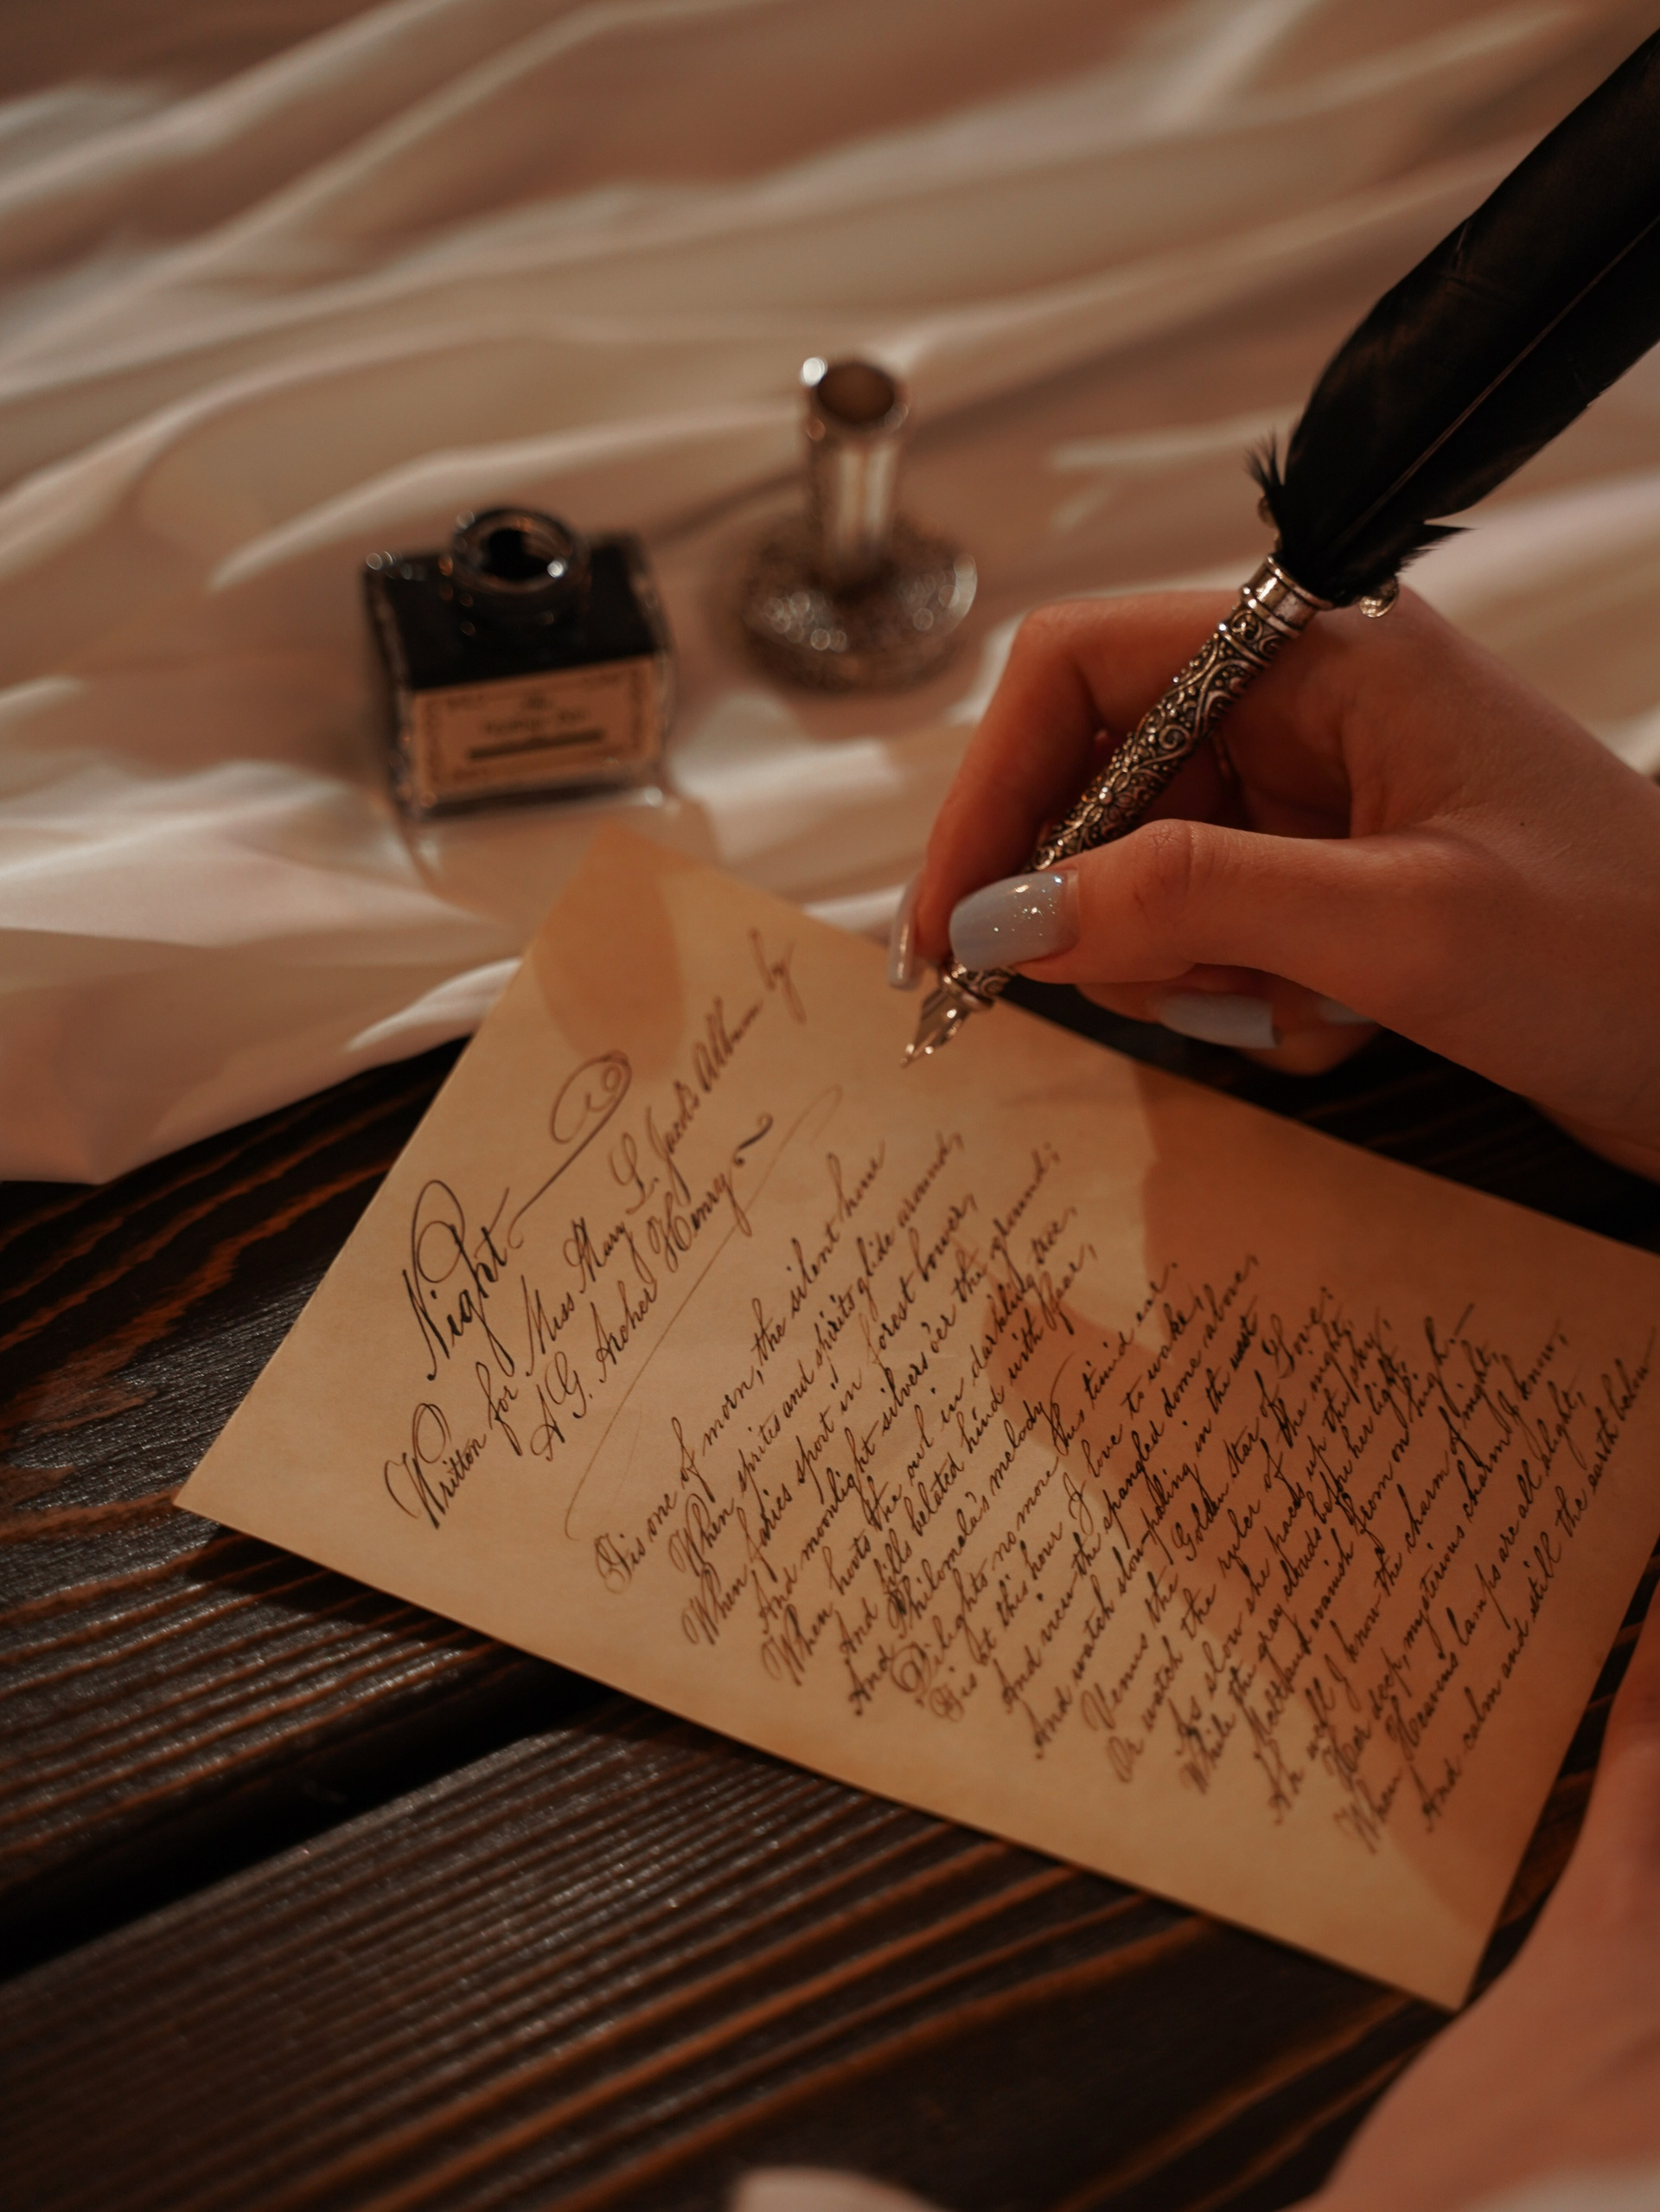 Night
Written for Miss Mary L. Jack's Album by
A.G. Archer Henry
Tis one of morn, the silent hour
When sprites and spirits glide around,
When faries sport in forest bower,
And moonlight silvers o'er the ground;
When hoots the owl in darkling tree,
And fills belated hind with fear,
And Philomela's melody
Delights no more this timid ear.
Tis at this hour I love to wake,
And view the spangled dome above,
And watch slow-paling in the west
Venus the Golden Star of Love;
Or watch the ruler of the night,
As slow she paces up the sky,
While the gray clouds before her light
Melt and vanish from on high.—
Ah well I know the charm of night,
Her deep, mysterious charm I know,
When Heavens lamps are all alight,
And calm and still the earth below